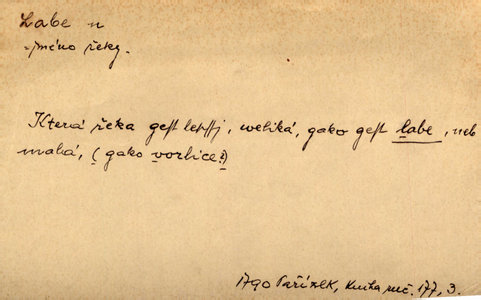 Labe n
jméno řeky.
Která řeka gest lepssj, weliká, gako gest labe, neb
malá, (gako vorlice?)
1790 Pařízek, Kniha ruč. 177, 3.